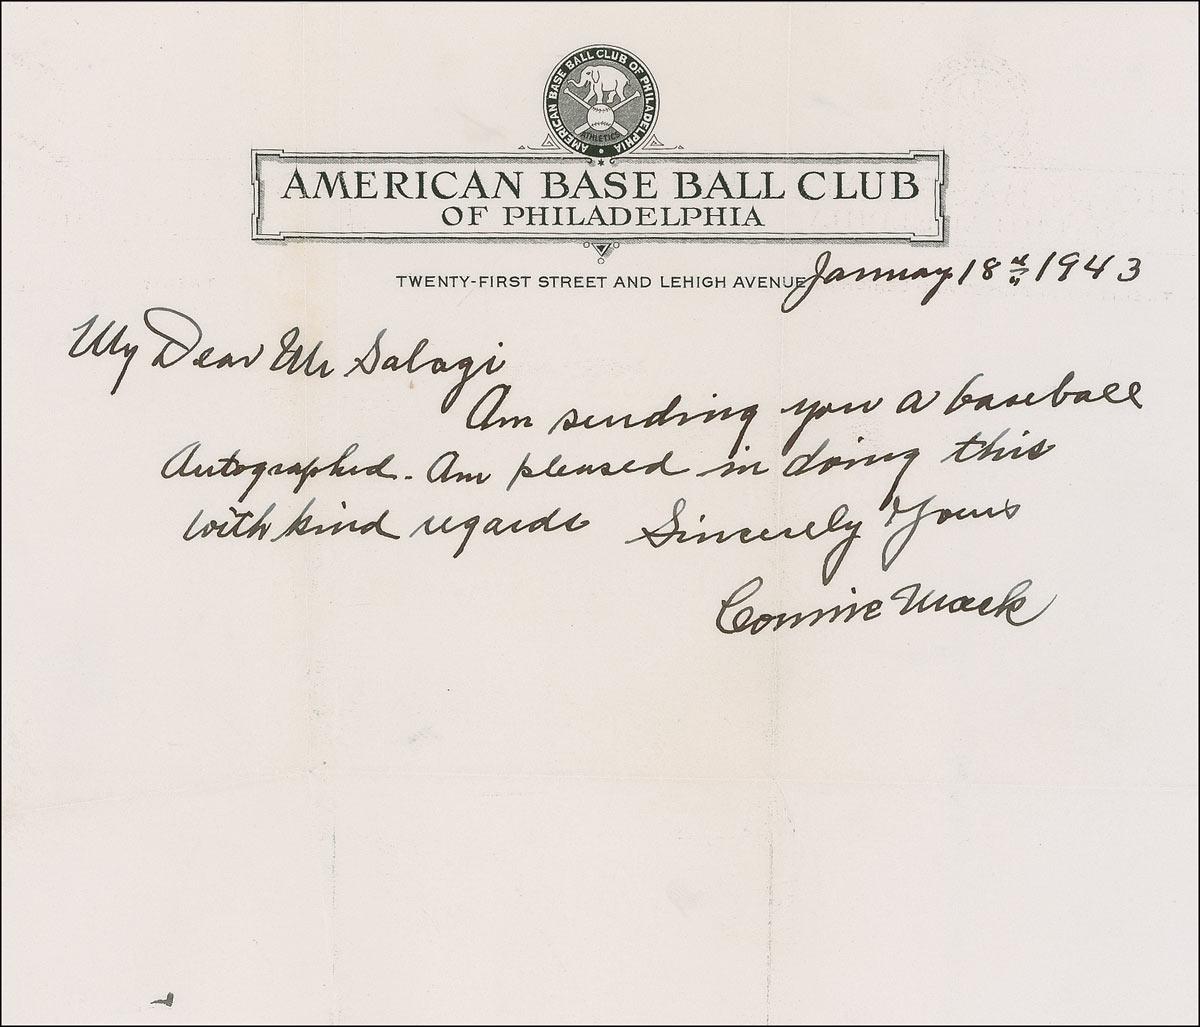 AMERICAN BASE BALL CLUB OF PHILADELPHIA
ATHLETICS
AMERICAN BASE BALL CLUB
OF PHILADELPHIA
TWENTY-FIRST STREET AND LEHIGH AVENUE
January 18th 1943
My Dear Mr Salagi
Am sending you a baseball
Autographed. Am pleased in doing this
with kind regards Sincerely Yours
Connie Mack